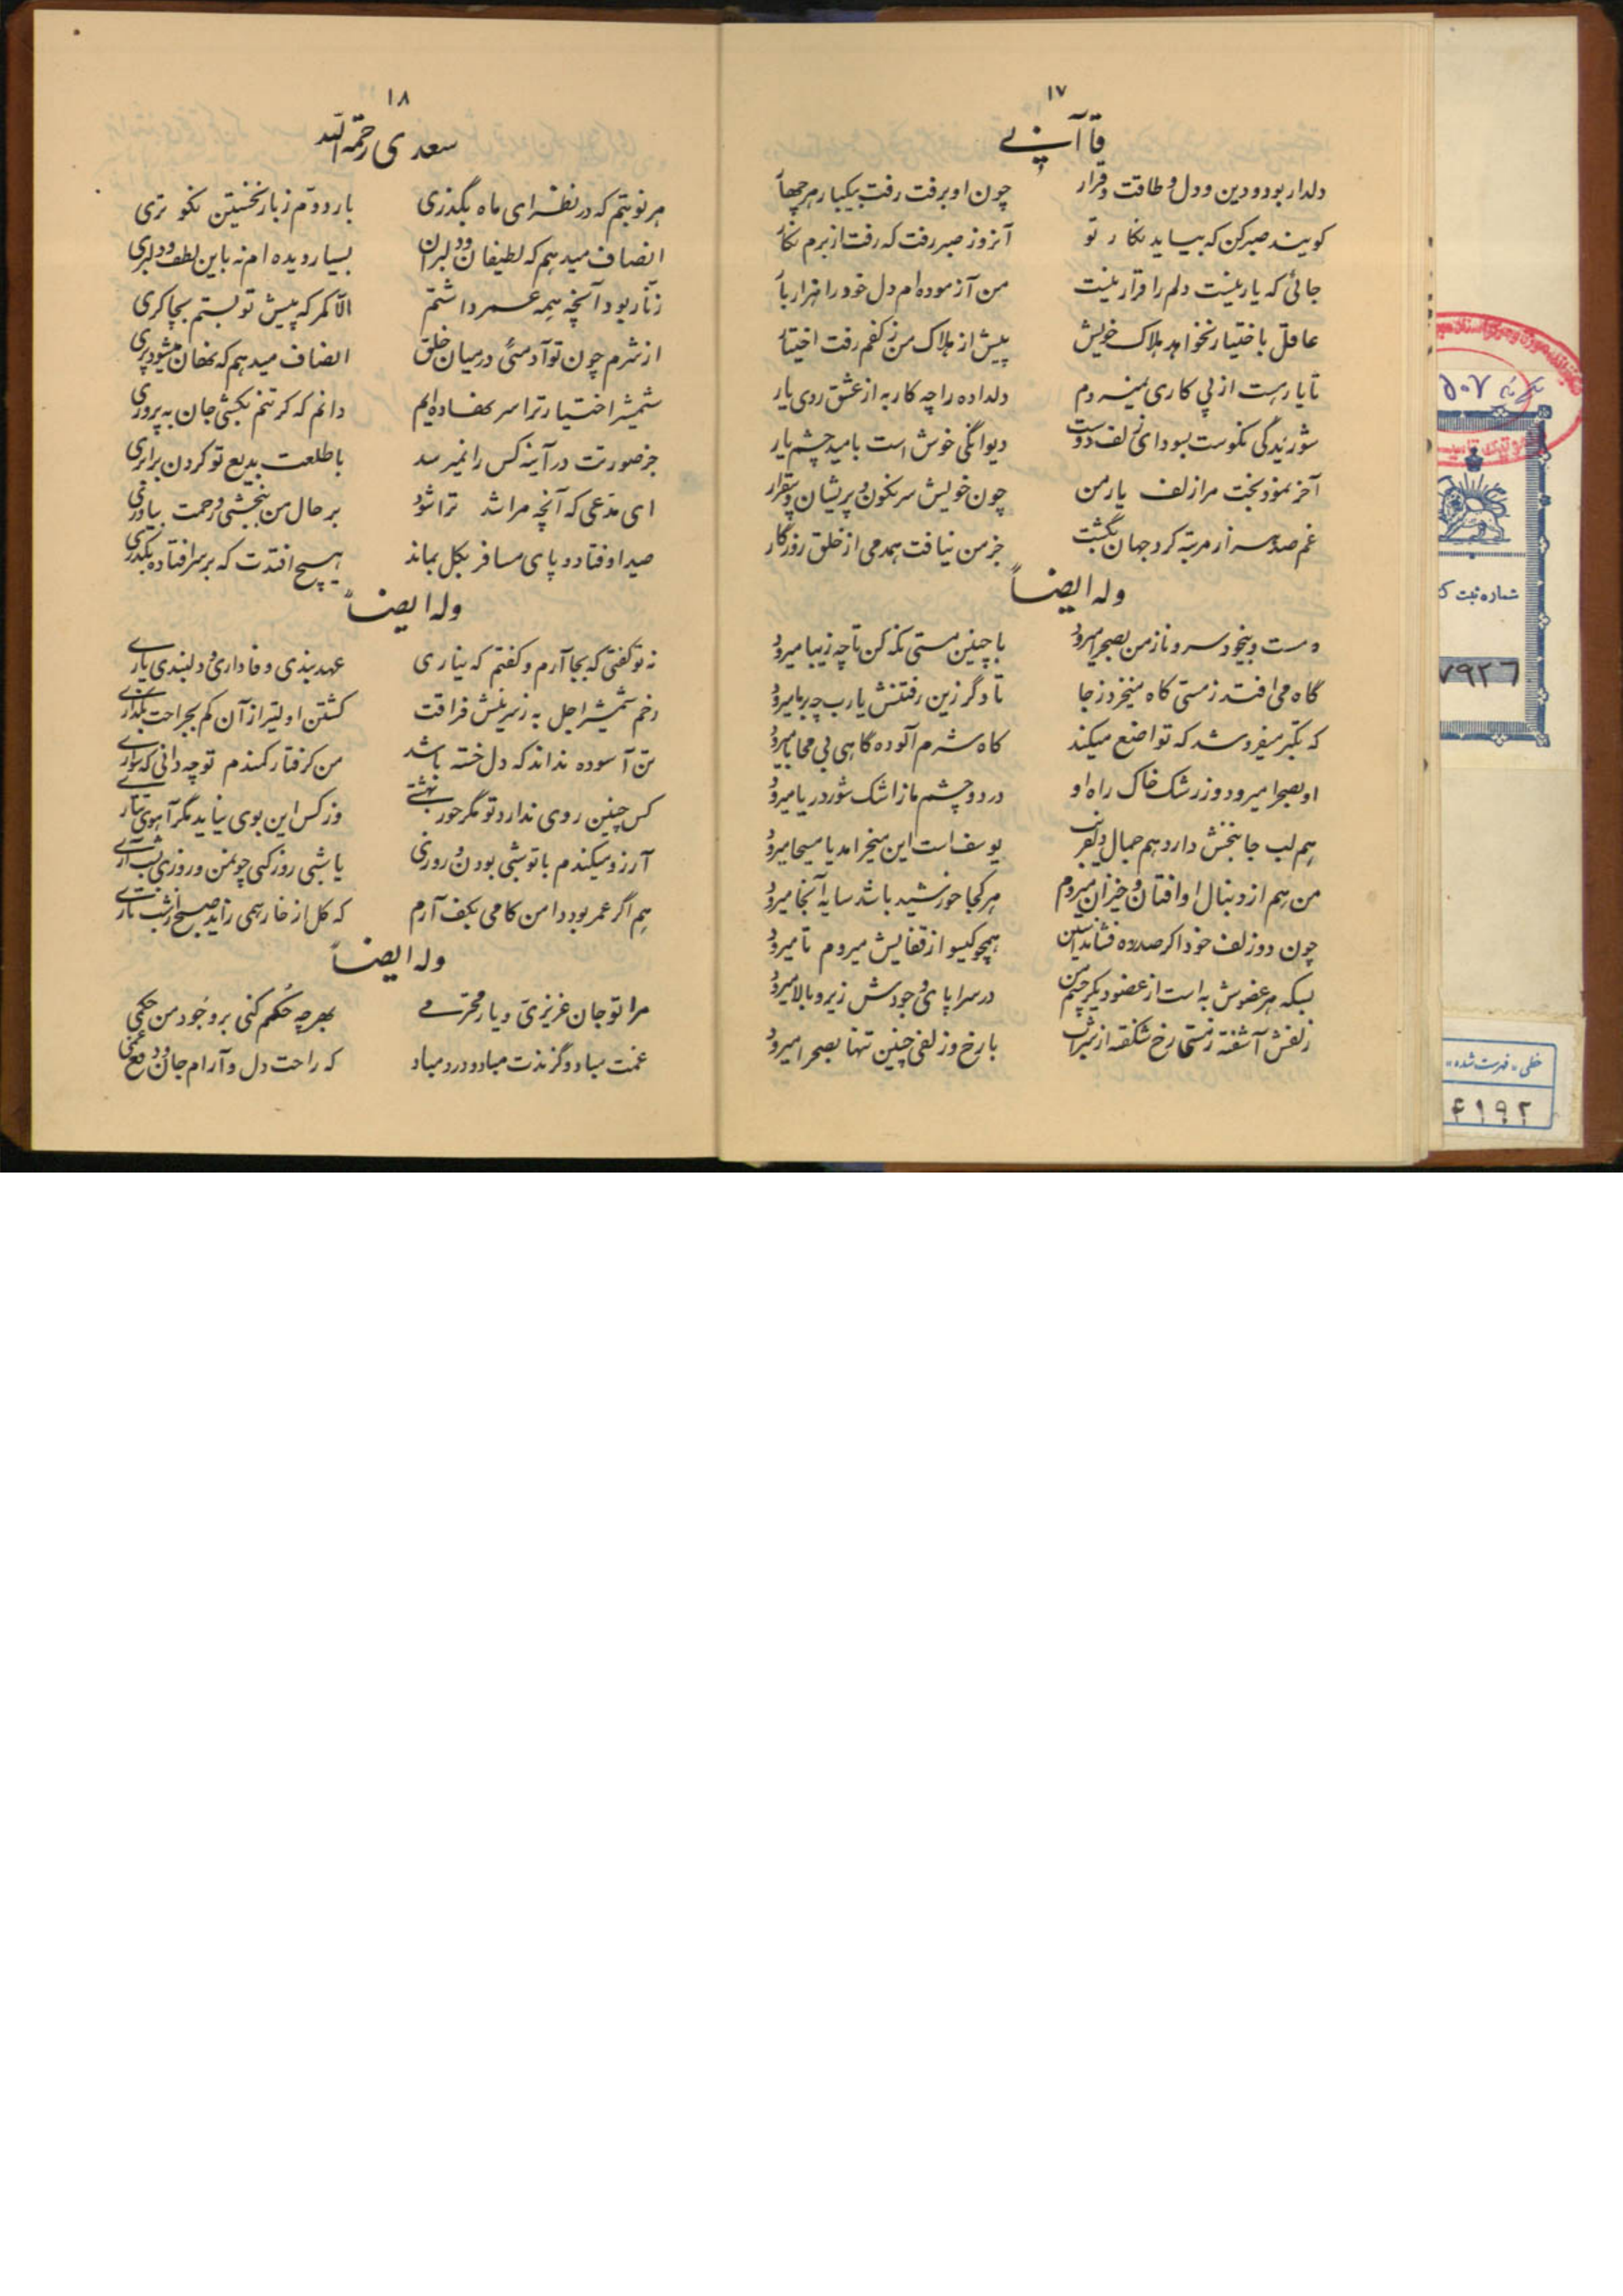 ۱۷
قاآنی
دلدار بود و دین و دل و طاقت و قرار چون او برفت رفت بیکبار هر چهار
کویند صبر کن که بیاید نکار تو آنروز صبر رفت که رفت از برم نکار
جائی که یار نیست دلم را قرار نیست من آزموده‌ام دل خود را هزار بار
عاقل باختیار نخواهد هلاک خویش پیش از هلاک من ز کفم رفت اختیار
تا یار هست از پی کاری نمیروم دلداده را چه کار به از عشق روی یار
شوریدگی نکوست بسودای زلف دوست دیوانگی خوش است بامید چشم یار
آخر نمود بخت مرا زلف یار من چون خویش سرنکون و پریشان و بیقرار
غم صد هزار مرتبه کرد جهان بگشت جز من نیافت همدمی از خلق روزگار
وله ایضاً
مست و بیخود سرو ناز من بصحرا میرود با چنین مستی نکه کن تا چه زیبا میرود
گاه می افتد ز مستی کاه میخیزد ز جا تا دگر زین رفتنش یارب چه برما میرود
که تکبر میفروشد که تواضع میکند کاه شرم آلوده گاهی بی محابا میرود
او بصحرا میرود وز رشک خاک راه او در دو چشم ما ز اشک شور دریا میرود
هم لب جانبخش دارد هم جمال دلفریب یوسف است این میخرامد یا مسیحا میرود
من هم از دنبال او افتان و خیزان میروم هر کجا خورشید باشد سایه آنجا میرود
چون دو زلف خود اکر صد ره فشاند آستین همچو کیسو از قفایش میروم تا میرود
بسکه هر عضوش به است از عضو دیکر چشم من در سراپای وجودش زیر و بالا میرود
زلفش آشفته ز مستی رخ شکفته از شراب با رخ و زلفی چنین تنها بصحرا میرود
۱۸
سعدی رحمة الله
هر نوبتم که در نظر ای ماه بگذری بار دوم ز بار نخستین نکو تری
انصاف میدهم که لطیفان و دلبران بسیار دیده ام نه باین لطف و دلبری
زنار بود آنچه همه عمر داشتم الا کمر که پیش تو بستم بچاکری
از شرم چون تو آدمئی در میان خلق انصاف میدهم که نهان میشود پری
شمشیر اختیار ترا سر نهاده‌ایم دانم که کر تنم بکشی جان به پروری
جز صورتت در آینه کس را نمیرسد با طلعت بدیع تو کردن برابری
ای مدعی که آنچه مرا شد ترا شود بر حال من ببخشی و رحمت بیاوری
صید اوفتاد و پای مسافر بکل بماند هیچ افتدت که بر سر افتاده بگذری
وله ایضاً
نه تو گفتی که بجا آرم و کفتم که نیاری عهد بندی و فاداری و دلبندی و یاری
زخم شمشیر اجل به ز سر نیش فراقت کشتن اولیتر از آن کم بجراحت بگذاری
تن آسوده نداند که دل خسته باشد من کرفتار کمندم تو چه دانی که سواری
کس چنین روی ندارد تو مگر حور بهشتی وز کس این بوی نیاید مگر آهوی تتاری
آرزو میکندم با تو شبی بودن و روزی یا شبی روز کنی چو من و روزی بشب آری
هم اگر عمر بود دامن کامی بکف آرم که کل از خار همی زاید و صبح از شب تاری
وله ایضاً
مرا تو جان عزیزی و یار محترمی بهر چه حکم کنی بر وجود من حکمی
غمت مباد و گزندت مباد و درد مباد که راحت دل و آرام جان و دفع غمی
شماره ثبت
۷۹۲۶
خطی «فهرست شده»
۴۱۹۲